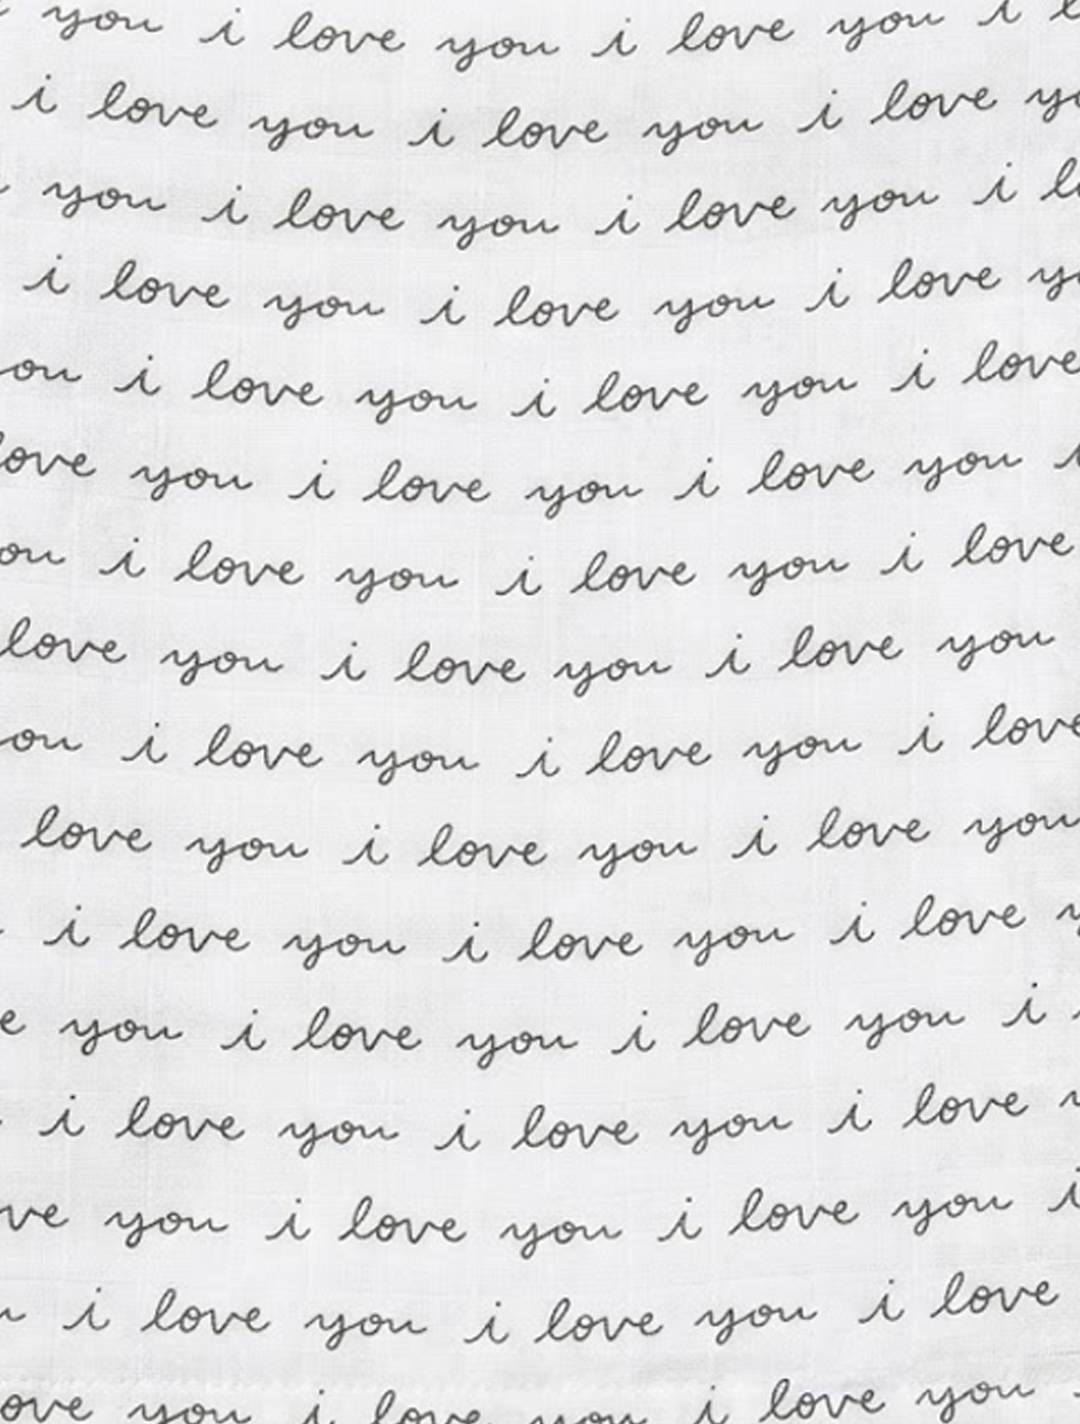 you i love you i love you i
i love you i love you i love
you i love you i love you i
i love you i love you i love
you i love you i love you i love
love you i love you i love you i
you i love you i love you i love
love you i love you i love you
you i love you i love you i love
love you i love you i love you
i love you i love you i love
you i love you i love you i
i love you i love you i love
you i love you i love you i
i love you i love you i love
love you i love you i love you